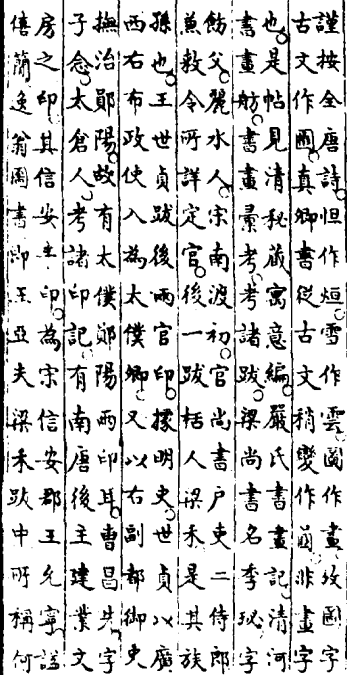 謹按全唐詩恒作烜雪作雲圖作畫故圖字
古文作圖真卿書從古文稍變作啚非畫字
也是帖見清秘藏寓意編嚴氏書畫記清河
書畫舫書畫彚考考諸跋梁尚書名季珌字
飭父麗水人宋南渡初官尚書户吏二侍郎
兼敕令所詳定官後一跋栝人梁禾是其族
孫也王世貞跋後兩官印據明史世貞以廣
西右布政使入為太僕卿又以右副都御史
撫治鄖陽故有太僕鄖陽兩印耳曹昌先字
子念太倉人考諸印記有南唐後主建業文
房之印其信安王印為宋信安郡王允寧諡
僖簡逸翁圖書卽王亞夫梁禾跋中所稱何